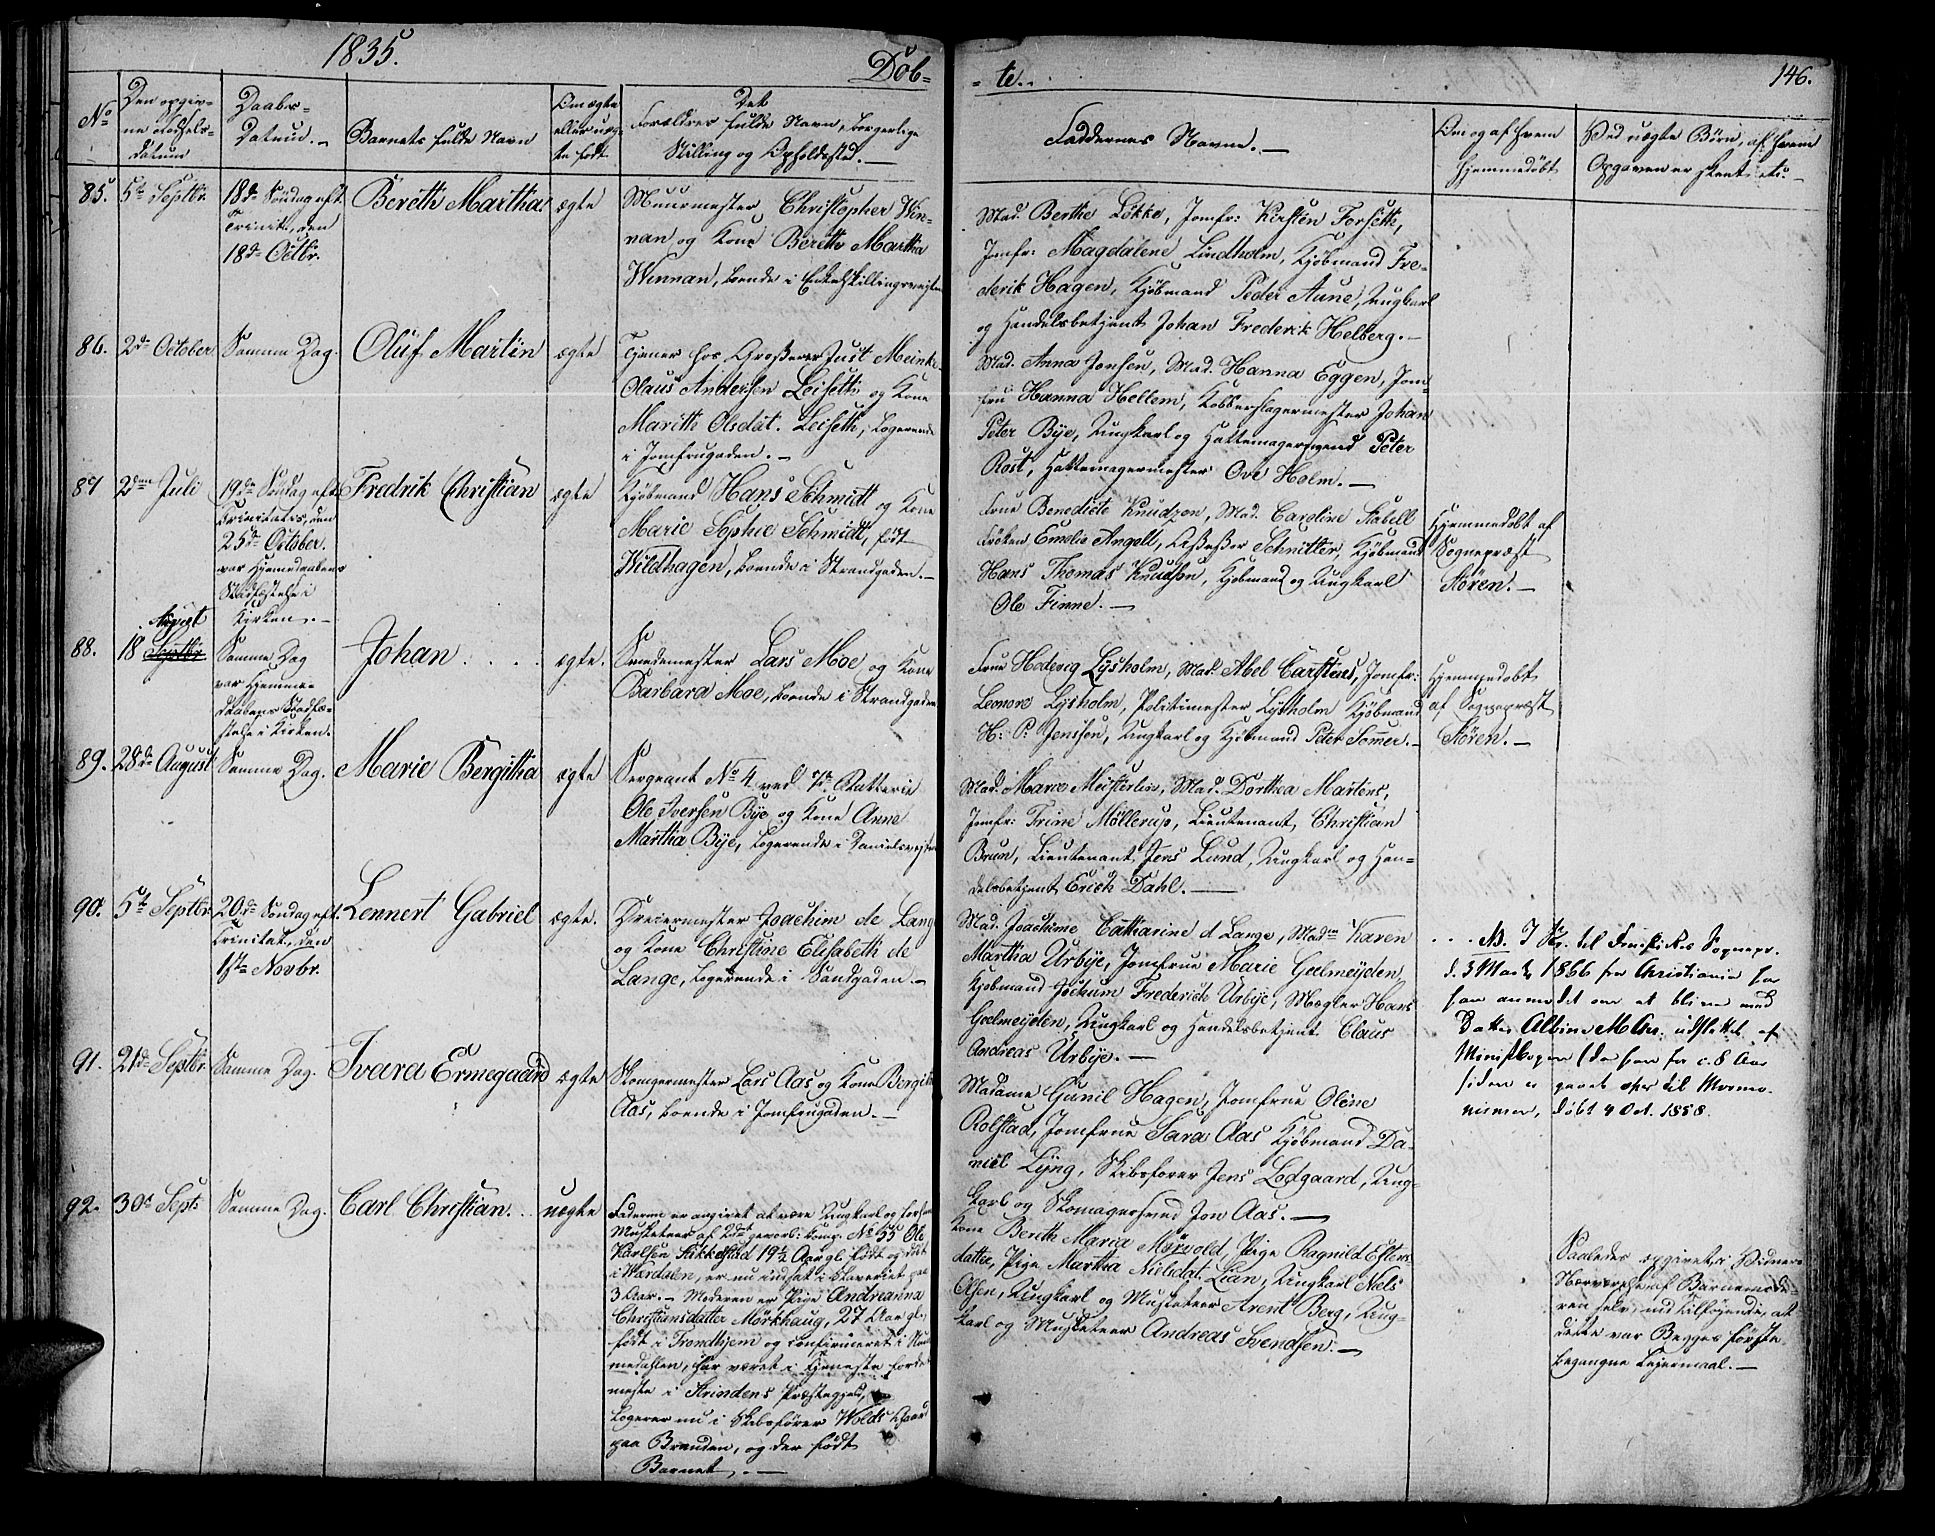 1835.
Døb=
- te.-
146.
No
Den opgiv-
ne Fødsels-
datum
Daabs-
Datum.-
Barnets fulde Navn
Om ægte
eller uæg-
te født
Det
Forældres fulde Navn, borgerlige
Stilling og Opholdssted.-
Faddernes Navne.-
Om og af hvem
hjemmedøbt
Ved uægte Børn, af hvem
Opgaven er skeet etc.-
85.
5te Septbr.
18de Søndag eft.
Trinit., den
18de Octbr.
Bereth Martha.
ægte
Muurmester Christopher Win-
nan og Kone Bereth Martha
Winnan, boende i Enkeltskillingsveiten
Mad. Berthe Løkke, Jomfr: Kirsten Forseth,
Jomfr: Magdalene Lindholm, Kjøbmand Fre-
derik Hagen, Kjøbmand Peder Aune, Ungkarl
og Handelsbetjent Johan Frederik Helberg.-
86.
2de October
Samme Dag.
Oluf Martin
ægte
Tjener hos Grosserer Just Meinke
Claus Andersen Leiseth og Kone
Marith Olsdat. Leiseth, Logerende
i Jomfrugaden.-
Mad. Anna Jonsen, Mad. Hanna Eggen, Jom-
fru Hanna Hellem, Kobberslagermester Johan
Peter Bye, Ungkarl og Hattemagersvend Peter
Rost, Hattemagermester Ove Holm.-
87
2den Juli
19de Søndag eft.
Trinitatis, den
25de October.
var Hjemmedaabens
Stadfæstelse i
Kirken.-
Fredrik Christian
ægte
Kjøbmand Hans Schmidt og Kone
Marie Sophie Schmidt, født
Wildhagen, boende i Strandgaden.-
Frue Benedicte Knudzon, Mad. Caroline Stabell
Frøken Emelie Angell, Assessor Schnitler, Kjøbmand
Hans Thomas Knudson, Kjøbmand og Ungkarl
Ole Finne.-
Hjemmedøbt af
Sognepræst
Støren.-
88.
August
18 Septbr
Samme Dag
var Hjemme-
daabens Stadfæ-
stelse i Kirken.
Johan. . . . .
ægte.
Smedemester Lars Moe og Kone
Barbara Moe, boende i Strandgaden
Frue Hedevig Lysholm, Mad. Abel Carstens, Jomfr:
Leonore Lysholm, Politimester Lysholm Kjøbmand
H: P: Jenssen, Ungkarl og Kjøbmand Peter Sommer.-
Hjemmedøbt
af Sognepræst
Støren.-
89.
28de August
Samme Dag.
Marie Bergitha
ægte
Sergeant No 4 ved Batterie
Ole Iversen Bye og Kone Anne
Martha Bye, Logerende i Danielsveiten
Mad. Marie Meisterlin, Mad. Dorthea Martens,
Jomfr: Trine Møllerup, Lieutenant, Christian
Brun, Lieutenant, Jens Lund, Ungkarl og Han-
delsbetjent Erich Dahl.-
90.
5te Septbr.
20de Søndag eft.
Trinitat., den
1ste Novbr.
Lennert Gabriel
ægte.
Dreiermester Joachim de Lange
og Kone Christine Elisabeth de
Lange, Logerende i Sandgaden.-
Mad. Joachime Catharine d Lange, Madm Karen
Martha Urbye, Jomfrue Marie Geelmeyden,
Kjøbmand Jochum Frederich Urbye, Mægler Hans
Geelmeyden, Ungkarl og Handelsbetjent Claus
Andreas Urbye.-
. . . NB. til Sognepr.
d. 3 1866 fra Christiania har
han anmodet om at blive med
Albine udslettet af
Ministbogen (da han for c. 8 Aar
siden er gaaet over til Mormo-
nismen, døbt 4 Oct. 1858.
91.
21de Septbr.
Samme Dag.
Ivara Ermegaard
ægte
Skomgermester Lars Aas og Kone Bergitha
Aas, boende i Jomfrugaden.-
Madame Gunil Hagen, Jomfrue Olene
Rolstad, Jomfrue Sara Aas Kjøbmand Da-
niel Lyng, Skibsfører Jens Lodgaard, Ung-
karl og Skomagersvend Jon Aas.-
92.
30te Septb
Samme Dag.
Carl Christian..
uægte
Faderen er angivet at være Ungkarl og forhen
Musketeer af 2det gevorb: Komp. No 55 Ole
Karlsen Stikkelstad 19½ Aar gl. født og døbt
i Wærdalen, er nu indsat i Slaveriet paa
3 Aar.- Moderen er Pige Andreanna
Christiansdatter Mørkhaug, 27 Aar gl.
født i Trondhjem og confirmeret i
medahlen, har været i Tjeneste fordet
meste i Strindens Præstegjeld,
Logerer nu i Skibsfører Wolds Gaard
paa Branden, og der født
Barnet.-
Kone Berith Maria Mørvold, Pige Ragnild Estens
datter, Pige Martha Nielsdat. Lian, Ungkarl Niels
Olsen, Ungkarl og Musketeer Arent Berg, Ung-
karl og Musketeer Andreas Svendsen.-
Saaledes opgivet i Vidners
Nærværelse af Barnemode-
ren selv, med tilføjende, at
dette var Begges første
begangne Leiermaal.-